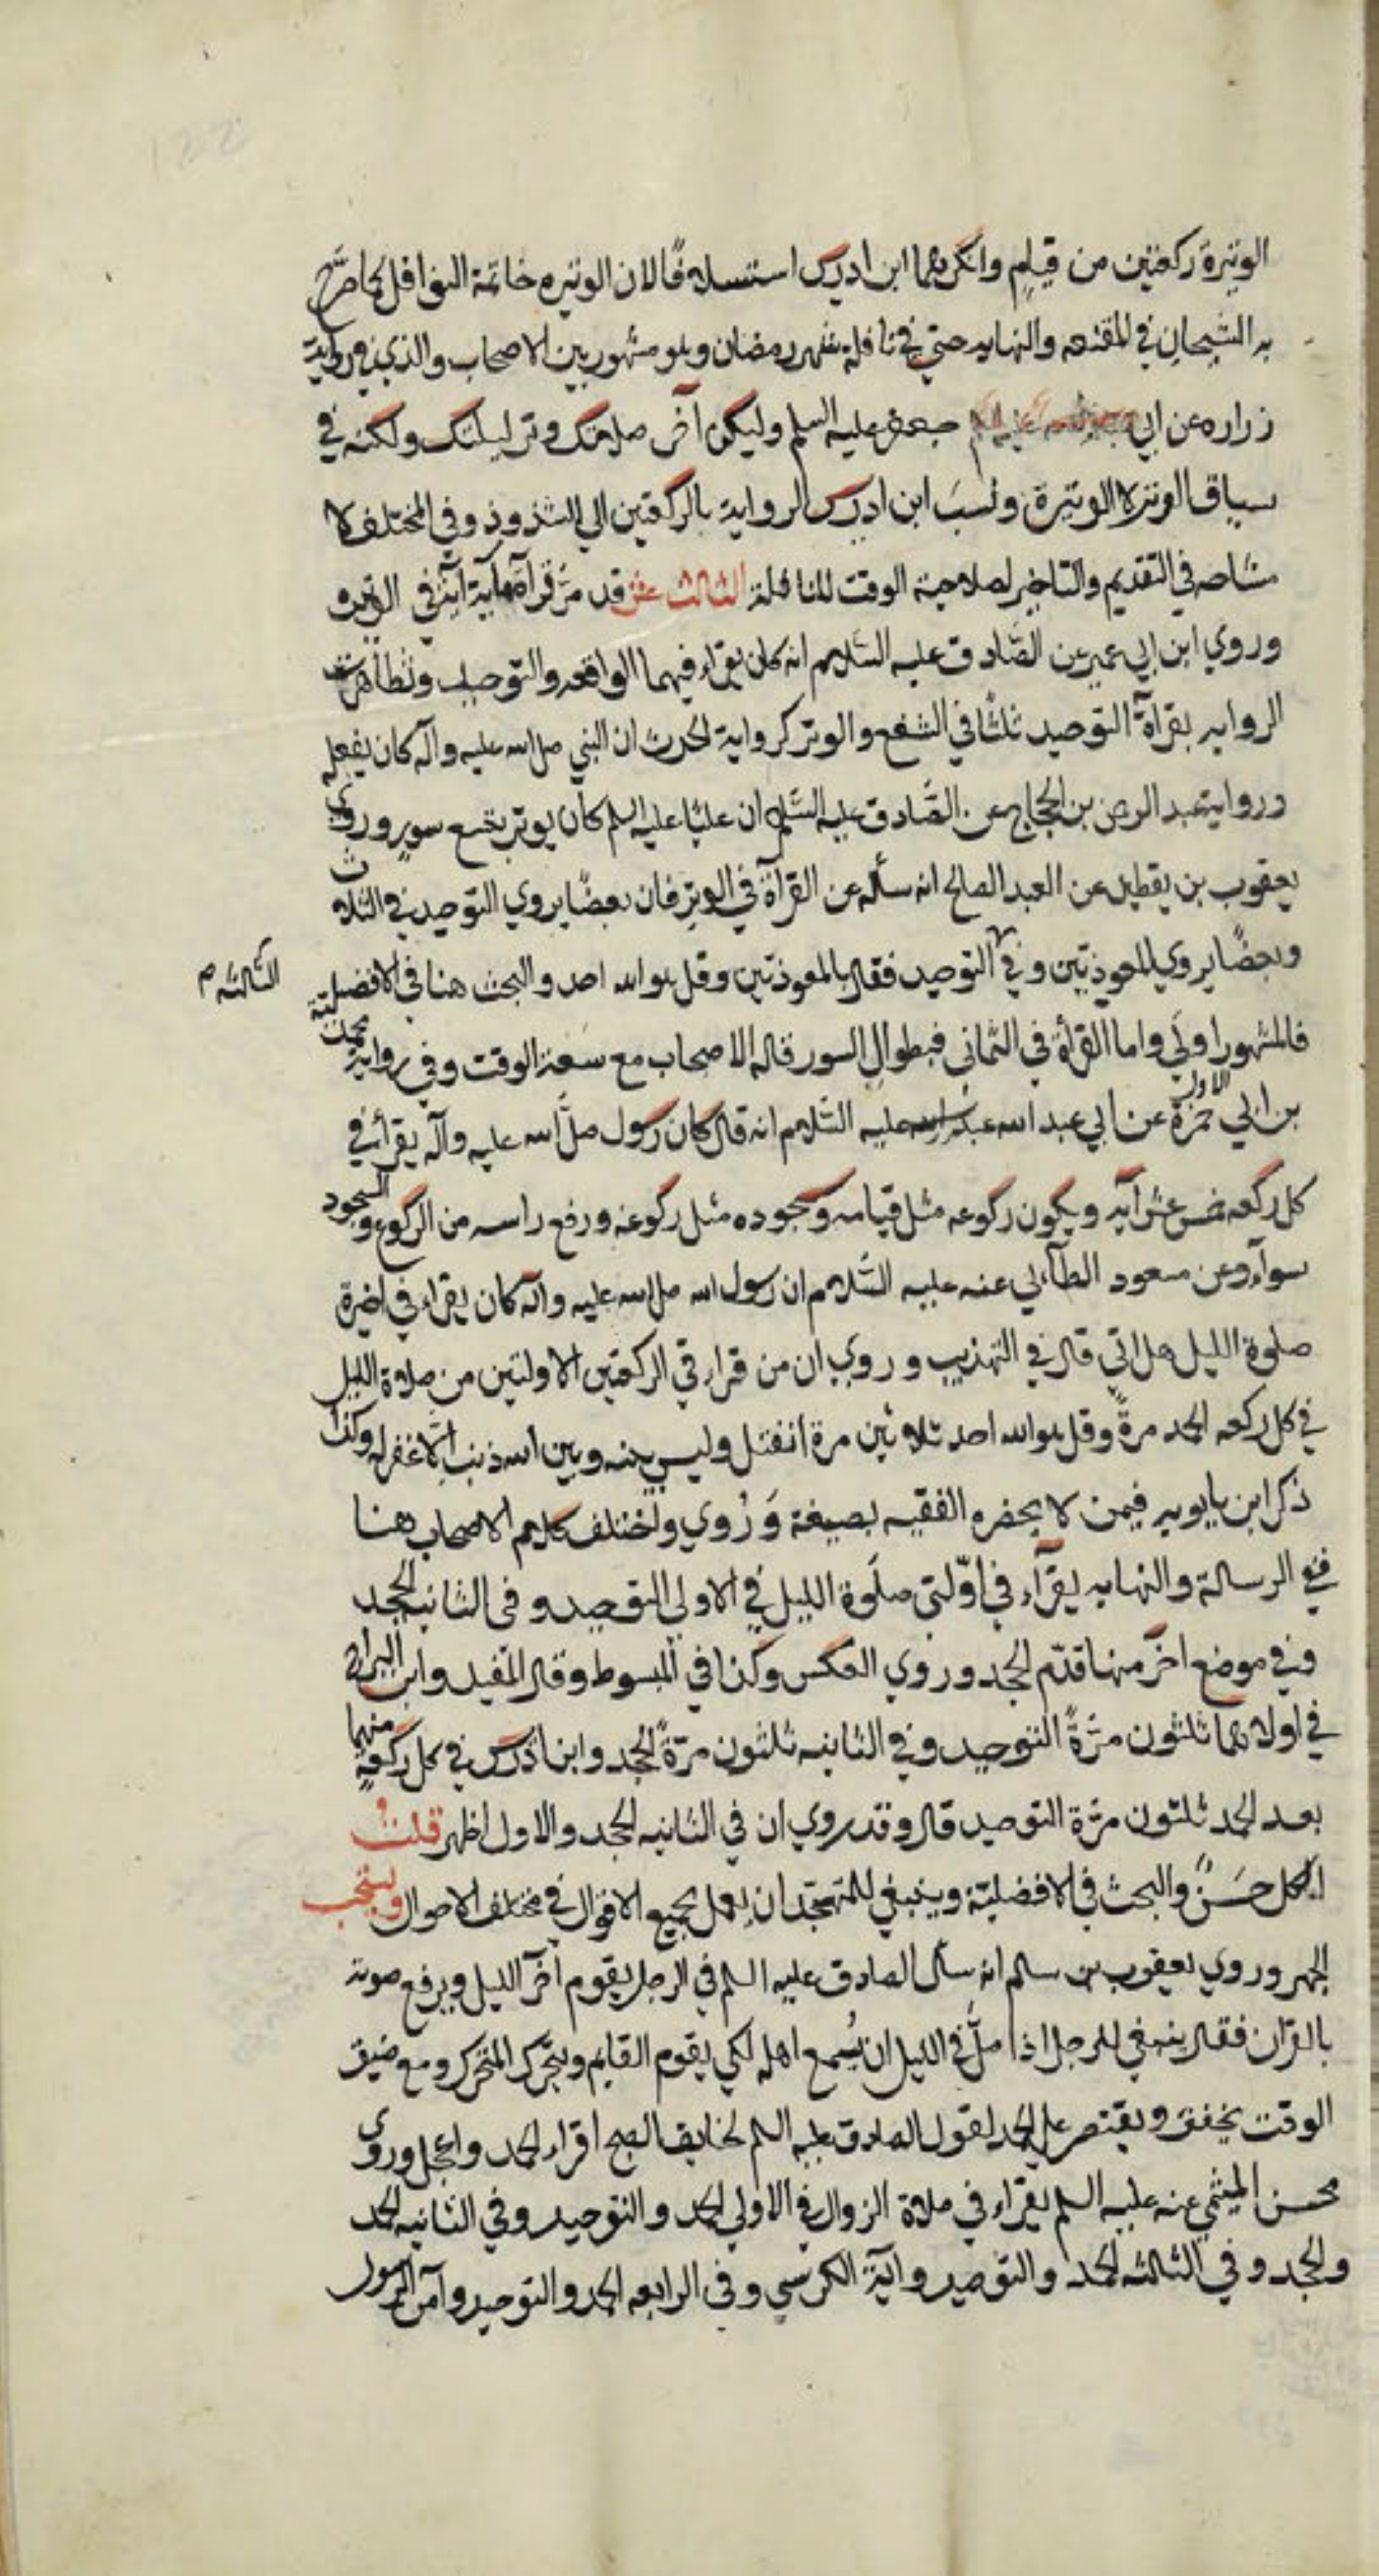 الوتيرة ركعتين من قيام وانكرهما ابن ادريس استسلافا لان الوتيره خاتمة النوافل كما صرح
به الشيخان في المقنعه والنهايه حتى في نافلة شهر رمضان وهو مشهور بين الاصحاب والذي في رواية
زراره عن ابي جعفر عليه السلم وليكن آخر صلاتك وتر ليلتك ولكنه في
سياق الوتر لا الوتيرة ونسب ابن ادريس الرواية بالركعتين الي الشذوذ وفي المختلف لا
مشاحه في التقديم والتاخير لصلاحية الوقت للنافلة الثالث عشر قد مر قرآة مآية آية في الوتيرة
وروي ابن ابي عمير عن الصادق عليه السلام انه كان يقراء فيهما الواقعه والتوحيد وتظاهرت
الروايه بقرآة التوحيد ثلثا في الشفع والوتر كرواية الحرث ان النبي صلى الله عليه وآله كان يفعله
ورواية عبد الرحمن بن الحجاج عن الصادق عليه السلام ان عليا عليه السلم كان يوتر بتسع سور وروي
يعقوب بن يقطين عن العبد الصالح انه سأله عن القرآة في الوتر فان بعضا يروي التوحيد في الثلاث
وبعضا يروي المعوذتين وفي الثالثه التوحيد فقال بالمعوذتين وقل هو الله احد والبحث هنا في الافضلية
فالمشهور اولى واما القرأة في الثماني فبطوال السور قاله الاصحاب مع سعة الوقت وفي رواية محمد
بن ابي حمزة عن ابي عبد الله عليه السلام انه قال كان رسول صلى الله عليه وآله يقرأ في
كل ركعه خمس عشر آيه ويكون ركوعه مثل قيامه وسجوده مثل ركوعه ورفع راسه من الركوع والسجود
سوآء وعن مسعود الطآئي عنه عليه السلام ان رسول الله صلى الله عليه وآله كان يقراء في اخيرة
صلوة الليل هل اتى قال في التهذيب وروي ان من قراء في الركعتين الاولتين من صلاة الليل
في كل ركعه الحمد مرة وقل هو الله احد ثلاثين مرة انفتل وليس بينه وبين الله ذنب الا غفر له وكذا
ذكر ابن بابويه فيمن لا يحضره الفقيه بصيغة وروي واختلف كلام الاصحاب هنا
ففي الرسالة والنهايه يقرآء في اولتي صلوة الليل في الاولي التوحيد وفي الثانيه الجحد
وفي موضع آخر منها قدم الجحد وروي العكس وكذا في المبسوط وقال المفيد وابن البراج
في اولاهما ثلثون مرة التوحيد وفي الثانيه ثلثون مرة الجحد وابن ادريس في كل ركعة منهما
بعد الحمد ثلثون مرة التوحيد قال وقد روي ان في الثانيه الجحد والاول اظهر قلت
الكل حسن والبحث في الافضلية وينبغي للمتهجد ان يعمل بجميع الاقوال في مختلف الاحوال ويستحب
الجهر وروي يعقوب بن سالم انه سأل الصادق عليه السلم في الرجل يقوم آخر الليل ويرفع صوته
بالقرآن فقال ينبغي للرجل اذا صلى في الليل ان يسمع اهله لكي يقوم القايم ويتحرك المتحرك ومع ضيق
الوقت يخفف ويقتصر على الحمد لقول الصادق عليه السلم لخايف الصبح اقراء الحمد واعجل وروى
محسن الميثمي عنه عليه السلم يقراء في صلاة الزوال في الاولي الحمد والتوحيد وفي الثانيه الحمد
والجحد وفي الثالثه الحمد والتوحيد وآية الكرسي وفي الرابعه الحمد والتوحيد وآمن الرسول